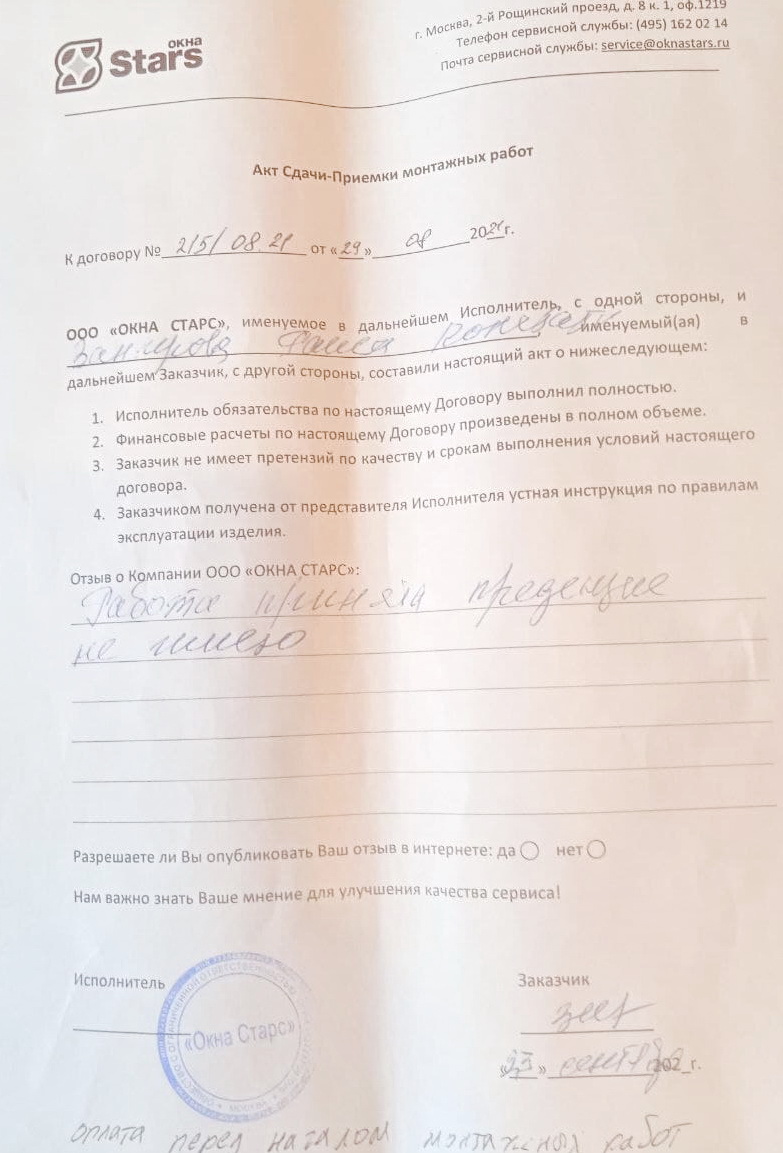 окна
Stars
г. Москва, 2-й Рощинский проезд, д. 8 к. 1, оф.1219
Телефон сервисной службы: (495) 162 02 14
Почта сервисной службы: service@oknastars.ru
Акт Сдачи-Приемки монтажных работ
К договору № 215/08.21 от «29» 08 2021г.
ООО «ОКНА СТАРС», именуемое в дальнейшем Исполнитель, с одной стороны, и
именуемый(ая) в
дальнейшем Заказчик, с другой стороны, составили настоящий акт о нижеследующем:
1. Исполнитель обязательства по настоящему Договору выполнил полностью.
2. Финансовые расчеты по настоящему Договору произведены в полном объеме.
3. Заказчик не имеет претензий по качеству и срокам выполнения условий настоящего
договора.
4. Заказчиком получена от представителя Исполнителя устная инструкция по правилам
эксплуатации изделия.
Отзыв о Компании ООО «ОКНА СТАРС»:
Работа принята
не имею
Разрешаете ли Вы опубликовать Ваш отзыв в интернете: да нет
Нам важно знать Ваше мнение для улучшения качества сервиса!
Исполнитель
Заказчик
«Окна Старс»
202_г.
оплата перед началом монтажных работ